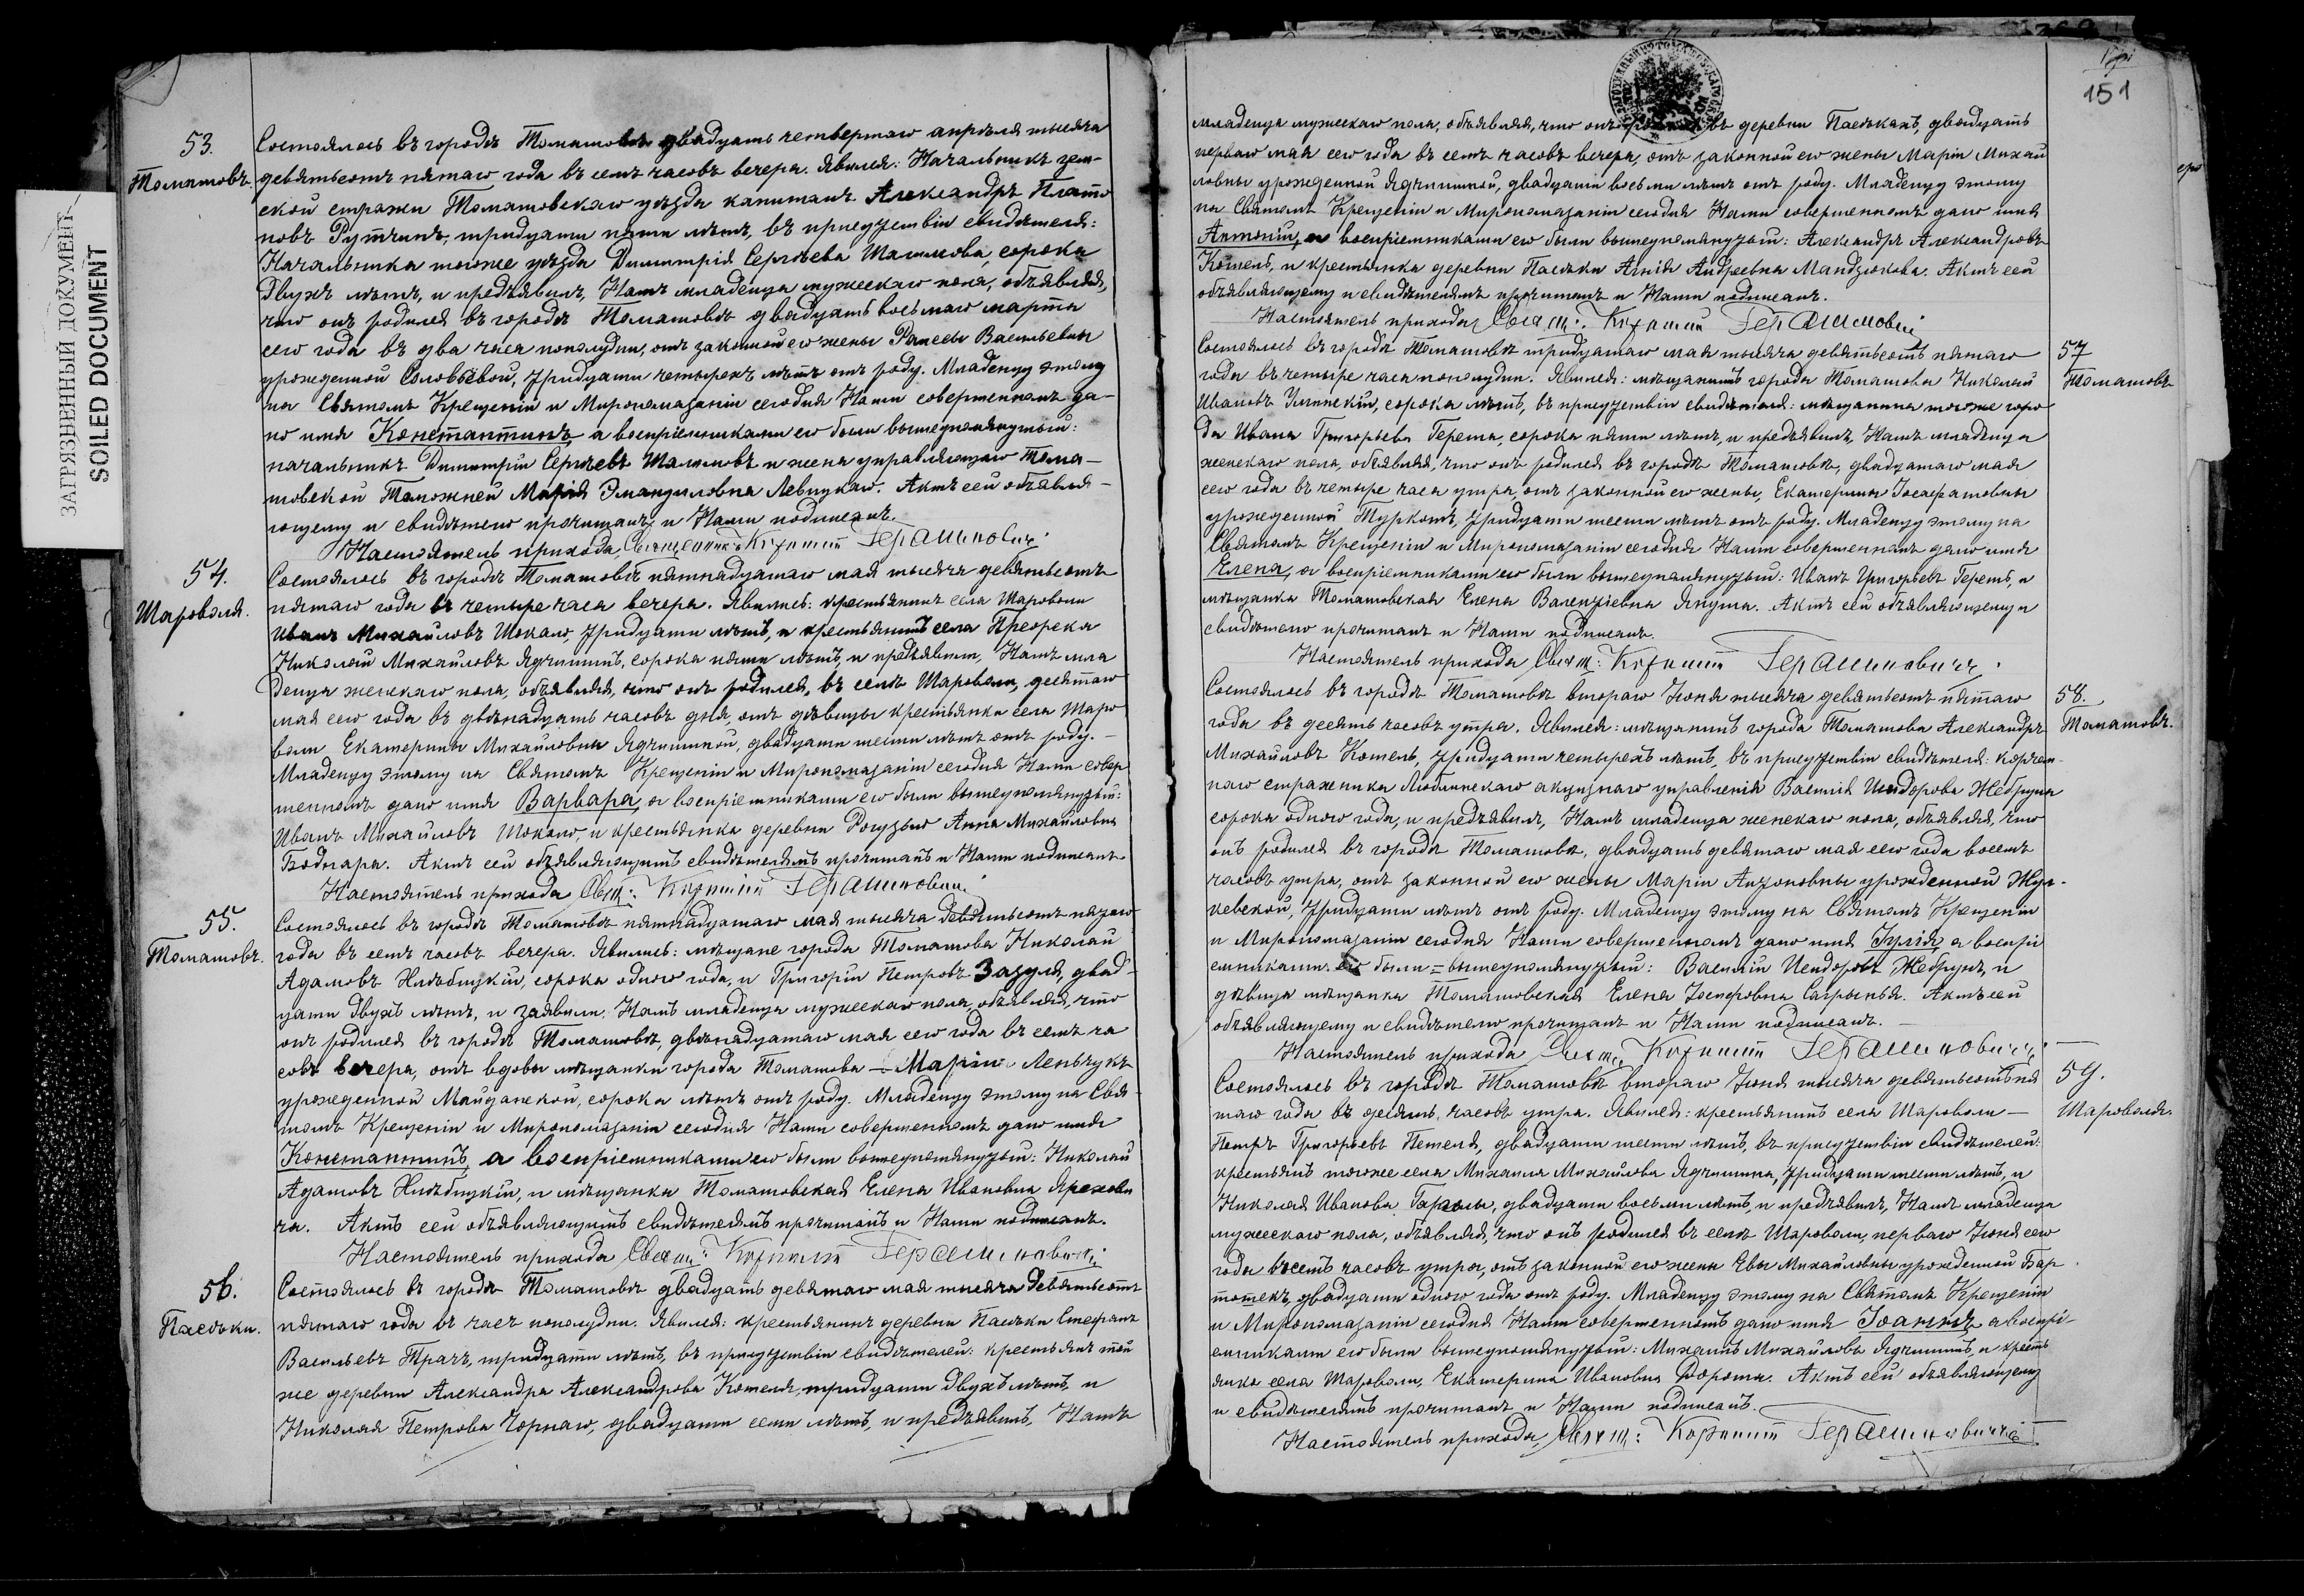 ЗАГРЯЗНЕННЫЙ ДОКУМЕНТ
SOILED DOCUMENT
53.
Томашовъ.
Состоялось въ городѣ Томашовѣ двадцать четвертаго апрѣля тысяча
девятьсотъ пятаго года въ семь часовъ вечера. Явился: Начальникъ зем-
ской стражи Томашовскаго уѣзда капитанъ Александръ Плато
новъ Рутчинъ, тридцати пяти лѣтъ, въ присутствіи свидѣтеля:
Начальника тогоже уѣзда Димитрія Сергѣева Шалимова, сорока
двухъ лѣтъ, и предъявилъ Намъ младенца мужескаго пола, объявляя,
что онъ родился въ городѣ Томашовѣ двадцать восьмаго марта
сего года въ два часа пополудни, отъ законной его жены Раисы Васильевны
урожденной Соловьевой, тридцати четырехъ лѣтъ отъ роду. Младенцу этому
на Святомъ Крещеніи и Миропомазаніи сегодня Нами совершенномъ да-
но имя Константинъ, а воспріемниками его были вышеупомянутый:
начальникъ Димитрій Сергѣевъ Шалимовъ и жена управляющаго Тома-
шовской Таможней Марія Эмануиловна Левицкаго. Актъ сей объявля-
ющему и свидѣтелю прочитанъ и Нами подписанъ.
Настоятель прихода, Священникъ Корнилій Герасимовичъ
54.
Шароволя.
Состоялось въ городѣ Томашовѣ пятнадцатаго мая тысяча девятьсотъ
пятаго года въ четыре часа вечера. Явились: крестьянинъ села Шароволи
Иванъ Михайловъ Шокало, тридцати лѣтъ, и крестьянинъ села Преорска
Николай Михайловъ Ядчишинъ, сорока пяти лѣтъ, и предъявили, Намъ мла
денца женскаго пола, объявляя, что онъ родился, въ селѣ Шароволи, десятаго
мая сего года въ двѣнадцать часовъ дня, отъ дѣвицы крестьянки села Шаро
воли Екатерины Михайловны Ядчишиной, двадцати шести лѣтъ отъ роду.
Младенцу этому на Святомъ Крещеніи и Миропомазаніи сегодня Нами совер
шенномъ дано имя Варвара, а воспріемниками его были вышеупомянутый:
Иванъ Михайловъ Шокало и крестьянка деревни Рогузьно Анна Михайловна
Боднара. Актъ сей объявляющимъ свидѣтелямъ прочитанъ и Нами подписанъ
Настоятель прихода Свящ: Корнилій Герасимовичъ
55.
Томашовъ.
Состоялось въ городѣ Томашовѣ пятнадцатаго мая тысяча девятьсотъ пятаго
года въ семь часовъ вечера. Явились: мѣщане города Томашова Николай
Адамовъ Хлѣбицкій, сорока одного года, и Григорій Петровъ Зазуля, двад-
цати двухъ лѣтъ, и заявили Намъ младенца мужескаго пола, объявляя, что
онъ родился въ городѣ Томашовѣ, двѣнадцатаго мая сего года въ семь ча
совъ вечера, отъ вдовы мѣщанки города Томашова Маріи Леньчукъ
урожденной Майданской, сорока лѣтъ отъ роду. Младенцу этому на Свя-
томъ Крещеніи и Миропомазаніи сегодня Нами совершенномъ дано имя
Константинъ, а воспріемниками его были вышеупомянутый: Николай
Адамовъ Хлѣбицкій, и мѣщанка Томашовская Елена Ивановна
ча. Актъ сей объявляющимъ свидѣтелямъ прочитанъ и Нами подписанъ.
Настоятель прихода Свящ: Корнилій Герасимовичъ
56.
Пасѣки.
Состоялось въ городѣ Томашовѣ двадцать девятаго мая тысяча девятьсотъ
пятаго года въ часъ пополудни. Явился: крестьянинъ деревни Пасѣки Стефанъ
Васильевъ Трачъ, тридцати лѣтъ, въ присутствіи свидѣтелей: крестьянъ той
же деревни Александра Александрова Котеля, тридцати двухъ лѣтъ, и
Николая Петрова Чорнаго, двадцати семи лѣтъ, и предъявилъ Намъ
151
младенца мужескаго пола, объявляя, что онъ родился въ деревни Пасѣкахъ, двадцать
перваго мая сего года въ семь часовъ вечера, отъ законной его жены Маріи Михай
ловны урожденной Ядчишиной, двадцати восьми лѣтъ отъ роду. Младенцу этому
на Святомъ Крещеніи и Миропомазаніи сегодня Нами совершенномъ дано имя
Антоній, а воспріемниками его были вышеупомянутый: Александръ Александровъ
Котель, и крестьянка деревни Пасѣки Андреевна Мандзюкова. Актъ сей
объявляющему и свидѣтелямъ прочитанъ и Нами подписанъ.
Настоятель прихода, Свящ: Корнилій Герасимовичъ
57
Томашовъ
Состоялось въ городѣ Томашовѣ тридцатаго мая тысяча девятьсотъ пятаго
года въ четыре часа пополудни. Явился: мѣщанинъ города Томашова Николай
Ивановъ сорока лѣтъ, въ присутствіи свидѣтеля: мѣщанина тогоже горо
да Ивана Григорьева Героша, сорока пяти лѣтъ, и предъявилъ, Намъ младенца
женскаго пола, объявляя, что онъ родился въ городѣ Томашовѣ, двадцатаго мая
сего года въ четыре часа утра, отъ законной его жены, Екатерины Іосафатовны
урожденной Туркотъ, тридцати шести лѣтъ отъ роду. Младенцу этому на
Святомъ Крещеніи и Миропомазаніи сегодня Нами совершенномъ дано имя
Елена, а воспріемниками его были вышеупомянутый: Иванъ Григорьевъ Герошъ, и
мѣщанка Томашовская Елена Валентіевна Януша. Актъ сей объявляющему и
свидѣтелю прочитанъ и Нами подписанъ.
Настоятель прихода Свящ: Корнилій Герасимовичъ.
58.
Томашовъ.
Состоялось въ городѣ Томашовѣ втораго Іюня тысяча девятьсотъ пятаго
года въ десять часовъ утра. Явился: мѣщанинъ города Томашова Александръ
Михайловъ Котель, тридцати четырехъ лѣтъ, въ присутствіи свидѣтеля: корчем-
наго стражника Люблинскаго акцизнаго управленія Василія Исидорова Жебруна
сорока одного года, и предъявилъ, Намъ младенца женскаго пола, объявляя, что
онъ родился въ городѣ Томашовѣ, двадцать девятаго мая сего года восемь
часовъ утра, отъ законной его жены Маріи Антоновны урожденной Жул-
кевской, тридцати лѣтъ отъ роду. Младенцу этому на Святомъ Крещеніи
и Миропомазаніи сегодня Нами совершенномъ дано имя Іулія, а воспрі
емниками его были = вышеупомянутый: Василій Исидоровъ Жебрунъ, и
дѣвица мѣщанка Томашовская Елена Іосифовна Актъ сей
объявляющему и свидѣтелю прочитанъ и Нами подписанъ.
Настоятель прихода Свящ: Корнилій Герасимовичъ
59.
Шароволя.
Состоялось въ городѣ Томашовѣ втораго Іюня тысяча девятьсотъ пя
таго года въ десять часовъ утра. Явился: крестьянинъ села Шароволи
Петръ Григорьевъ Петеля, двадцати шести лѣтъ, въ присутствіи свидѣтелей:
крестьянъ тогоже села Михаила Михайлова Ядчишина, тридцати шести лѣтъ, и
Николая Иванова двадцати восьми лѣтъ, и предъявилъ, Намъ младенца
мужескаго пола, объявляя, что онъ родился въ селѣ Шароволи, перваго Іюня сего
года въ семь часовъ утра, отъ законной его жены Евы Михайловны урожденной Бар
тошекъ, двадцати одного года отъ роду. Младенцу этому на Святомъ Крещеніи
и Миропомазаніи сегодня Нами совершенномъ дано имя Іоаннъ, а воспрі-
емниками его были вышеупомянутый: Михаилъ Михайловъ Ядчишинъ, и кресть
янка села Шароволи, Екатерина Ивановна Дорош. Актъ сей объявляющему
и свидѣтелямъ прочитанъ и Нами подписанъ.
Настоятель прихода, Свящ: Корнилій Герасимовичъ